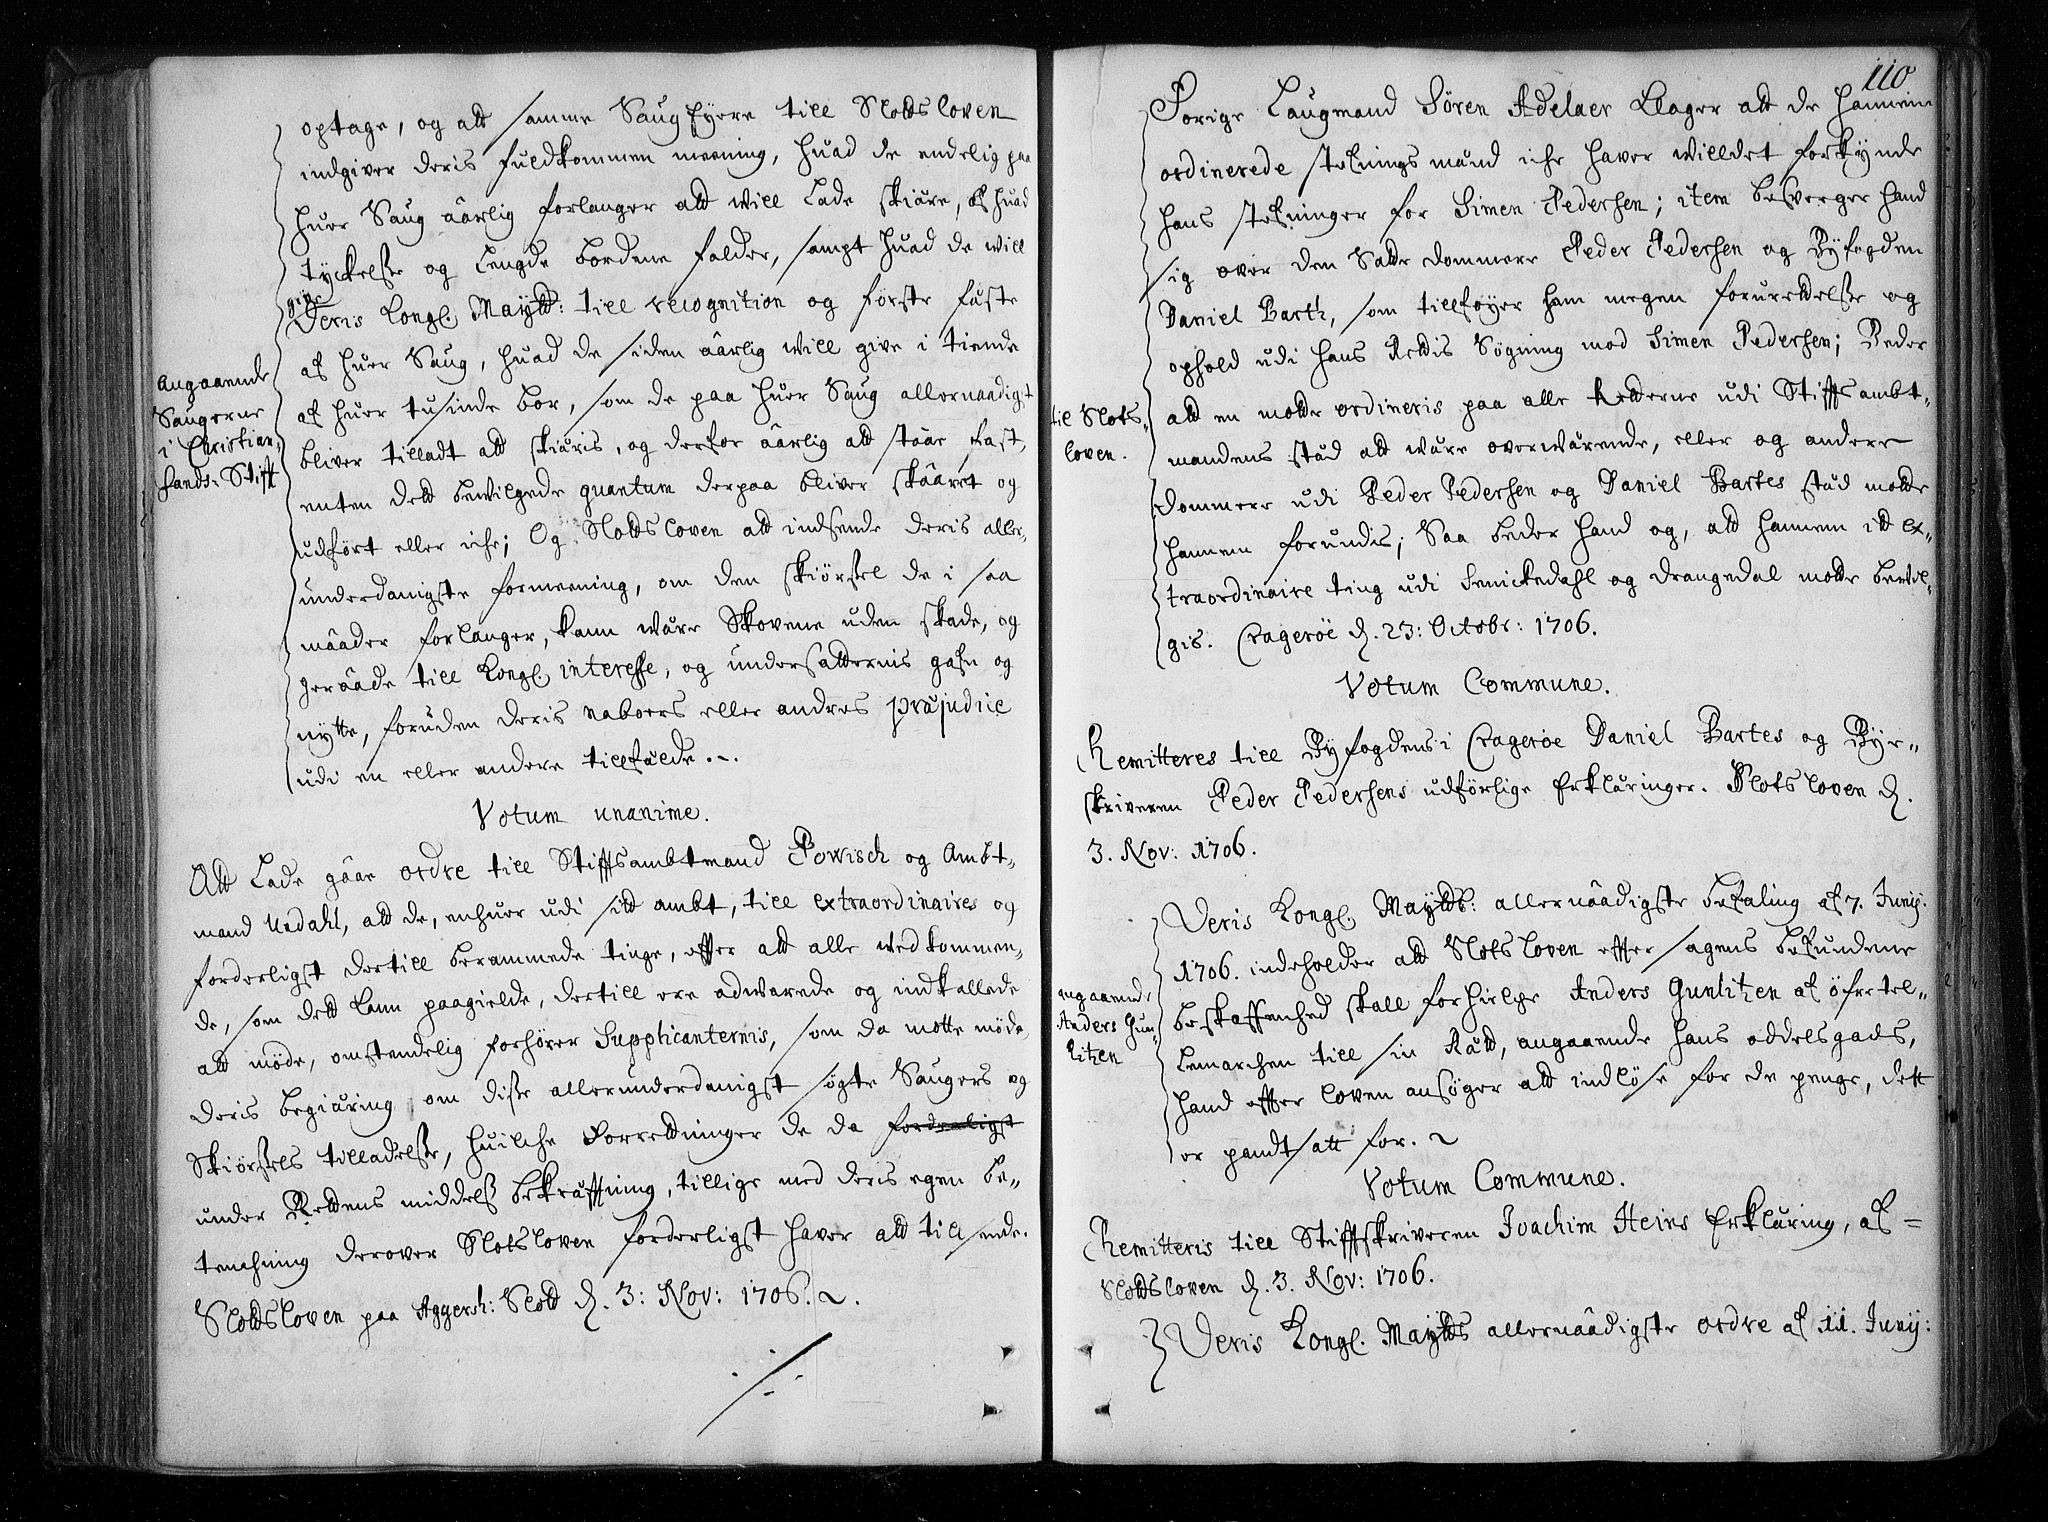 optage, og att samme Saugeyere till Slodsloven
indgiver deris fuldkommen meening, huad de endelig paa
huer Saug aarlig forlanger att will lade skiære, af huad
tyckelsse og lengde bordene falder, sampt huad de will
give
Deris Kongl. Mayttz: till recognition og første fæste
af huer Saug, huad de siden aarlig will give i tiende
af huer tusinde bor, som de paa huer Saug allernaadigst
bliver tilladt att skiæris, og derfor aarlig att staae fast,
enten dett bewilgede quantum derpaa bliver skaaret og
udført eller iche; Og Slodsloven att indsende deris aller-
underdanigste formeening, om den skiørssel de i saa
maader forlanger, kann være Skovene uden skade, og
geraade till Kongl. interesse, og undersatternis gafn og
nytte, foruden deris naboers eller andres præjudice
udi en eller andere tillfælde.
Angaaende
Saugerne
i Christian-
sands-Stifft
Votum unanime.
Att lade gaae ordre till Stiffsambtmand Powisch og Ambt-
mand Undahl, att de, enhuer udi sitt ambt, till extraordinaires og
forderligst dertill berammede tinge, efter att alle wedkommen-
de, som dett kann paagielde, dertill ere adwarede og indkallede
att møde, omstendelig forhører Supplicanternis, som da motte møde,
deris begiæring om disse allerunderdanigst søgte Saugers og
Skiørssels tilladelsse, huilche forrettninger de da forderligst
under Rettens middels bekræfftning, tillige med deris egen be-
tenchning derover Slotsloven forderligst haver att till sende.
Slodsloven paa Aggersh: Slott d. 3: Nov: 1706.
110
Forige Laugmand Søren Adelaer klager att de hannem
ordinerede stefningsmænd iche haver willdet forkynde
hans stefninger for Simen Pedersen; item besverger hand
sig over den Satte dommere Peder Pedersen og Byfogden
Daniel Bartz, som tillføyer ham megen forurettelsse og
ophold udi hans Rettis Søgning mod Simen Pedersen; Beder
att en motte ordineris paa alle Retterne udi Stiffsambt-
mandens stæd att være overwærende, eller og andere
dommere udi Peder Pedersen og Daniel Bartes stæd motte
hannem forundis; Saa beder hand og, att hannem itt ex-
traordinaire ting udi Sanickedahl og Drangedal motte bevil-
gis. Cragerøe d. 23: Octobr: 1706.
til Slots-
loven.
Votum Commune.
Remitteres till Byfogdens i Cragerøe Daniel Bartes og Byr-
skriveren Peder Pedersens udførlige Erklæringer. Slotsloven d.
3. Nov: 1706.
Deris Kongl. Mayttz: allernaadigste befaling af 7. Junij.
1706. indeholder att Slotsloven effter sagens befundene
beskaffenhed skall forhielpe Anders Gunlitzen af Øfretel-
lemarchen till sin Rætt, angaaende hans oddelsgads,
hand effter loven ansøger att indløse for de penge, dett
er pandtsatt for.
angaaende
Anders Gun-
litzen
Votum Commune.
Remitteris till Stiffskriveren Joachim Heins Erklæring, af
Slodsloven d. 3. Nov: 1706.
Deris Kongl. Mayttz allernaadigste ordre af 11. Junij: